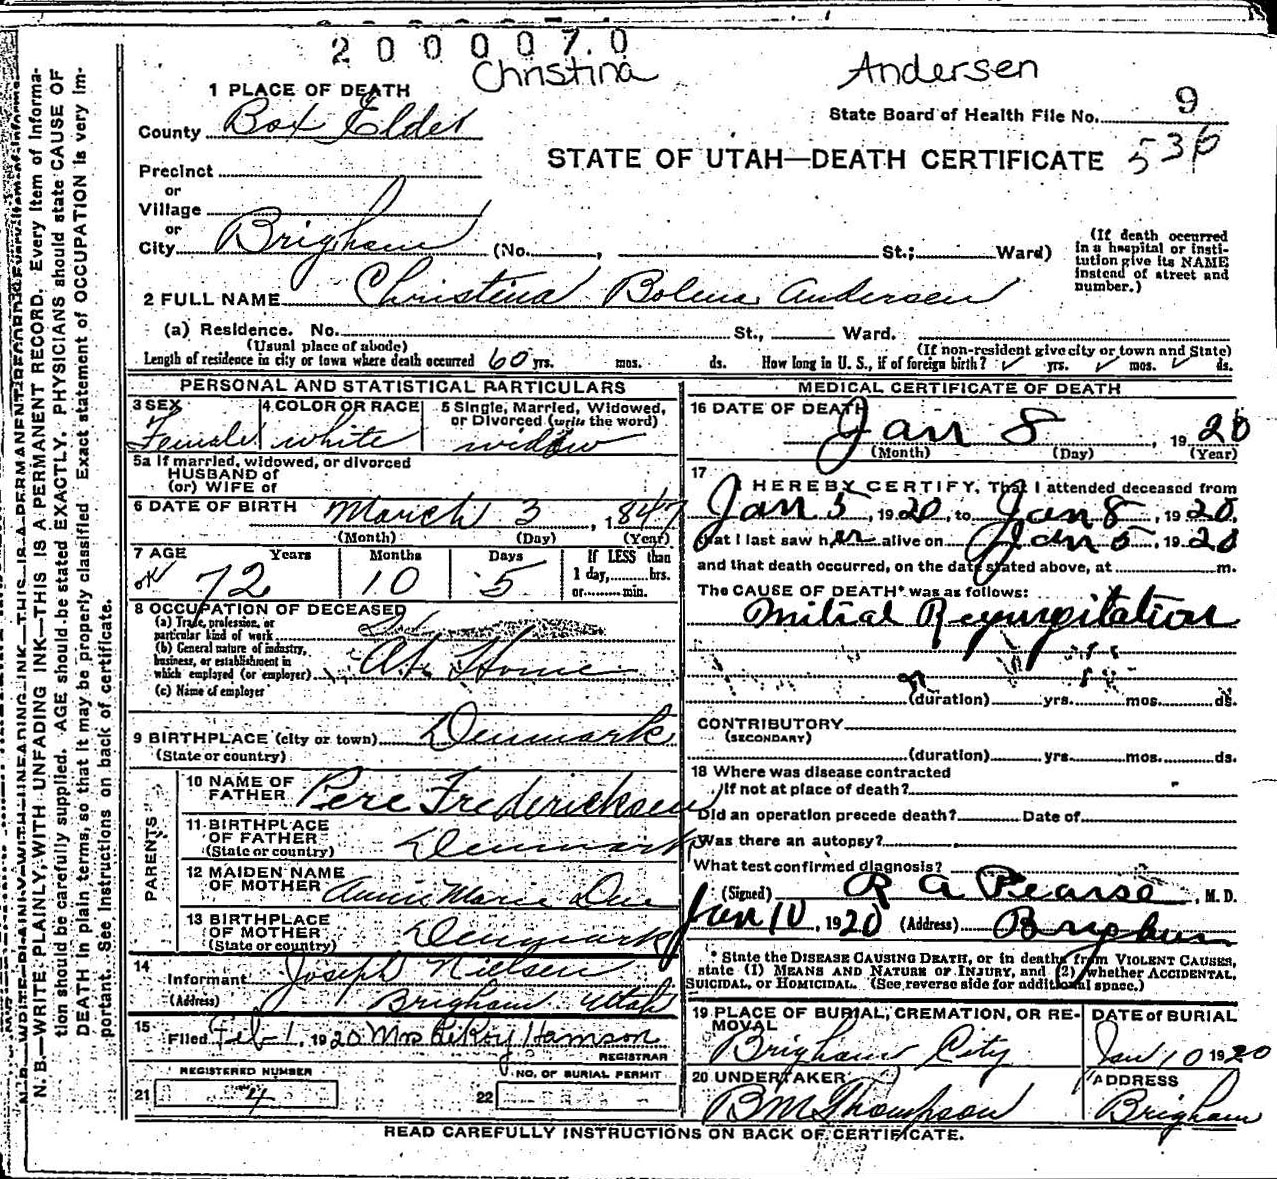 2000070
Christina Andersen
1 PLACE OF DEATH
State Board of Health File No. 9
County Box Elder
STATE OF UTAH—DEATH CERTIFICATE 536
Precinct
or
Village
or
City Brigham (No. , St.; Ward)
(If death occurred in a hospital or institution give its NAME instead of street and number.)
2 FULL NAME Christina Bolena Andersen
(a) Residence. No. St., Ward.
(Usual place of abode)
(If non-resident give city or town and State)
Length of residence in city or town where death occurred 60 yrs. mos. ds. How long in U. S., if of foreign birth? ✓ yrs. ✓ mos. ✓ ds.
PERSONAL AND STATISTICAL PARTICULARS
3 SEX
Female
4 COLOR OR RACE
white
5 Single, Married, Widowed,
or Divorced (write the word)
widow
5a If married, widowed, or divorced
HUSBAND of
(or) WIFE of
6 DATE OF BIRTH March 3, 1847
(Month) (Day) (Year)
7 AGE Years Months Days If LESS than
1 day, hrs.
or min.
OK 72 10 5
8 OCCUPATION OF DECEASED
(a) Trade, profession, or
particular kind of work
(b) General nature of industry,
business, or establishment in
which employed (or employer) At Home
(c) Name of employer
9 BIRTHPLACE (city or town) Denmark
(State or country)
PARENTS
10 NAME OF
FATHER Pere Fredericksen
11 BIRTHPLACE
OF FATHER
(State or country) Denmark
12 MAIDEN NAME
OF MOTHER Annie Marie Due
13 BIRTHPLACE
OF MOTHER
(State or country) Denmark
14
Informant Joseph Nielsen
(Address) Brigham Utah
15
Filed Feb 1, 1920 Mrs LeRoy Hamson
REGISTRAR
REGISTERED NUMBER
21 4
NO. OF BURIAL PERMIT
22
MEDICAL CERTIFICATE OF DEATH
16 DATE OF DEATH
Jan 8, 1920
(Month) (Day) (Year)
17
I HEREBY CERTIFY, That I attended deceased from
Jan 5, 1920, to Jan 8, 1920,
that I last saw her alive on Jan 5, 1920
and that death occurred, on the date stated above, at m.
The CAUSE OF DEATH* was as follows:
Mitral Regurgitation
(duration) yrs. mos. ds.
CONTRIBUTORY
(SECONDARY)
(duration) yrs. mos. ds.
18 Where was disease contracted
If not at place of death?
Did an operation precede death? Date of
Was there an autopsy?
What test confirmed diagnosis?
(Signed) R A Pearse, M. D.
Jan 10, 1920 (Address) Brigham
* State the DISEASE CAUSING DEATH, or in deaths from VIOLENT CAUSES,
state (1) MEANS AND NATURE OF INJURY, and (2) whether ACCIDENTAL,
SUICIDAL, or HOMICIDAL. (See reverse side for additional space.)
19 PLACE OF BURIAL, CREMATION, OR REMOVAL
Brigham City
DATE of BURIAL
Jan 10 1920
20 UNDERTAKER
B M Thompson
ADDRESS
Brigham
READ CAREFULLY INSTRUCTIONS ON BACK OF CERTIFICATE.
N. B.—WRITE PLAINLY, WITH UNFADING INK—THIS IS A PERMANENT RECORD. Every item of informa-
tion should be carefully supplied. AGE should be stated EXACTLY. PHYSICIANS should state CAUSE OF
DEATH in plain terms, so that it may be properly classified. Exact statement of OCCUPATION is very im-
portant. See instructions on back of certificate.